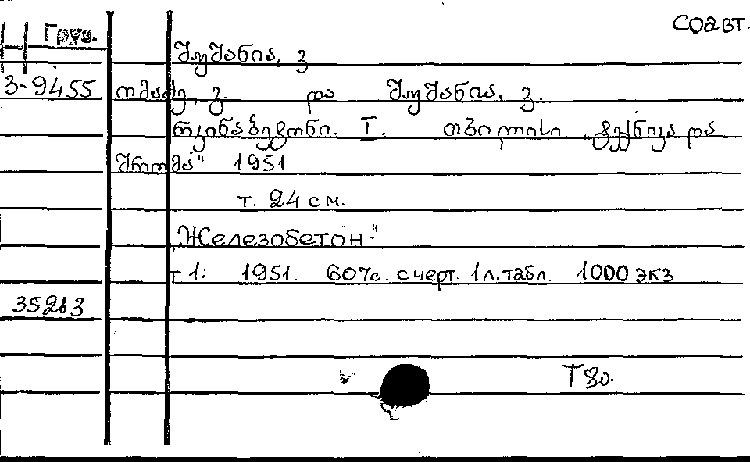 соавт.
Груз.
შუშანია, ვ
3-9455 ომაძე, ვ. და შუშანია, ვ.
რკინაბეტონი. I. თბილისი „ტექნიკა და
შრომა" 1951
т. 24 см.
„Железобетон"
т 1. 1951. 607с. с черт. 1 л. табл. 1000 экз
35213